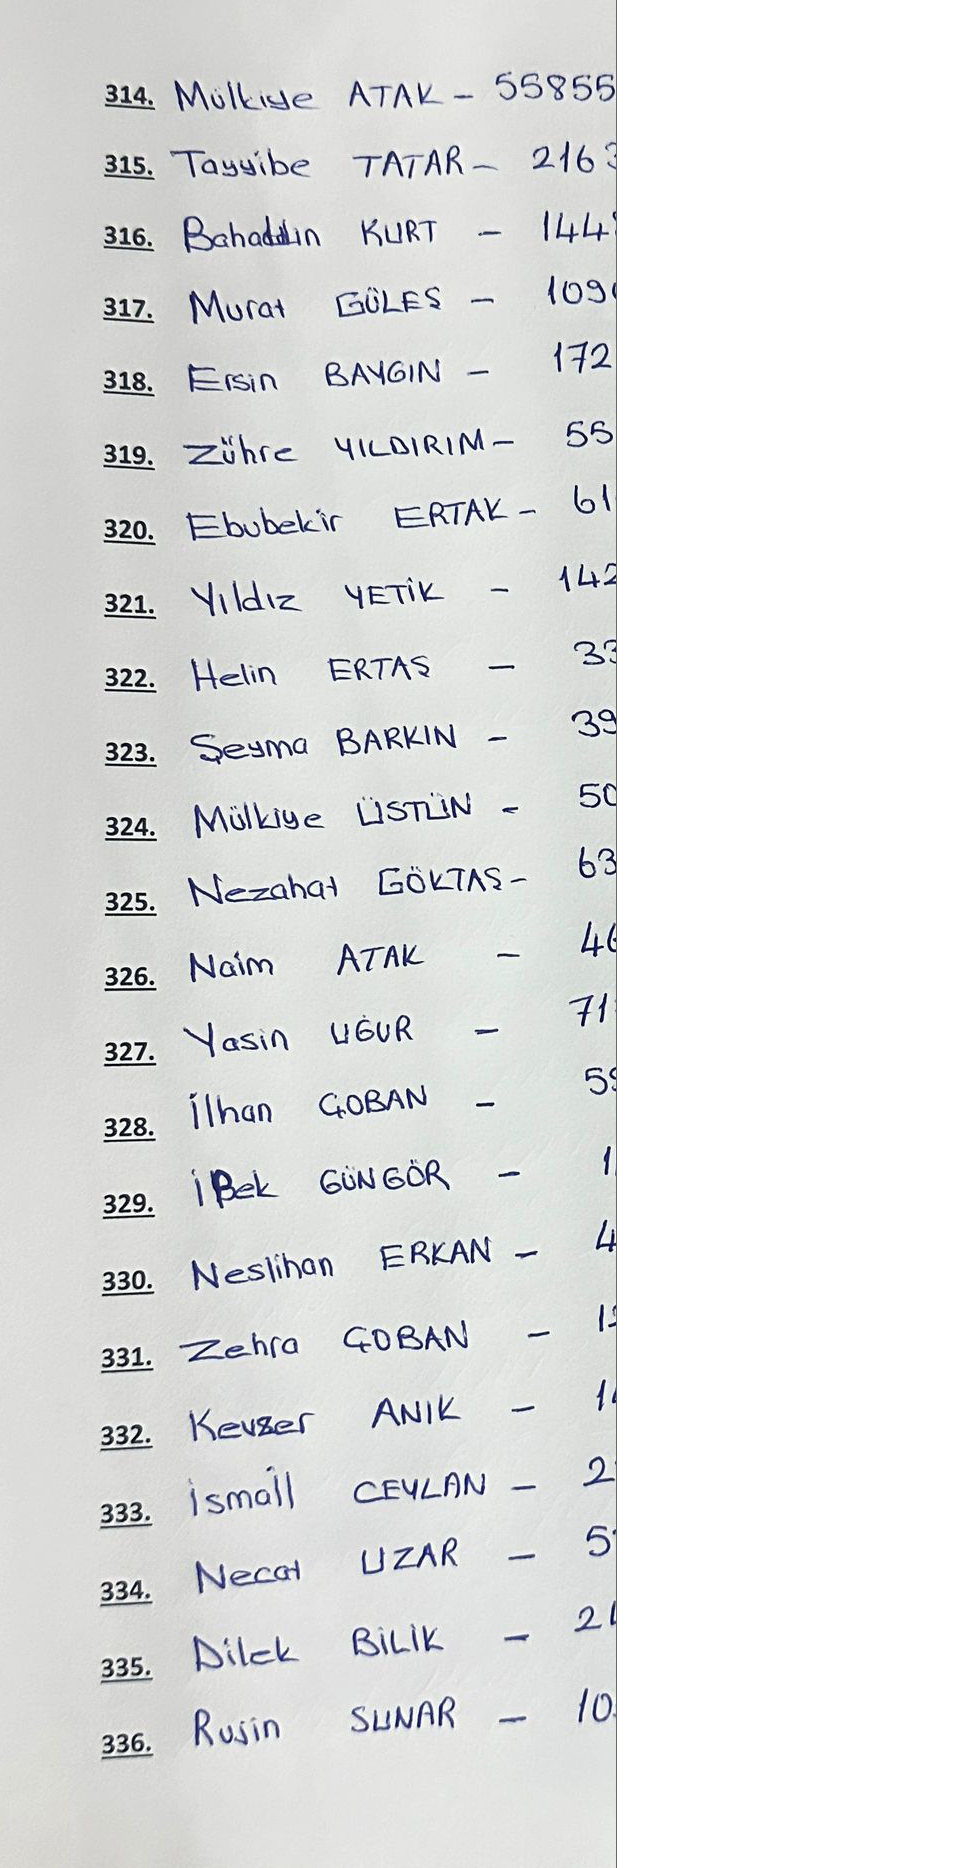 314. Mülkiye ATAK - 55855
315. Tayyibe TATAR - 2163
316. Bahaddin KURT - 144
317. Murat GÜLEŞ - 109
318. Ersin BAYGIN - 172
319. Zühre YILDIRIM - 55
320. Ebubekir ERTAK - 61
321. Yıldız YETİK - 142
322. Helin ERTAŞ - 33
323. Şeyma BARKIN - 39
324. Mülkiye ÜSTÜN - 50
325. Nezahat GÖKTAŞ - 63
326. Naim ATAK - 46
327. Yasin UĞUR - 71
328. İlhan ÇOBAN - 59
329. İpek GÜNGÖR - 1
330. Neslihan ERKAN - 4
331. Zehra ÇOBAN - 1
332. Kevser ANIK - 1
333. İsmail CEYLAN - 2
334. Necat UZAR - 5
335. Dilek BİLİK - 21
336. Ruşin SUNAR - 10